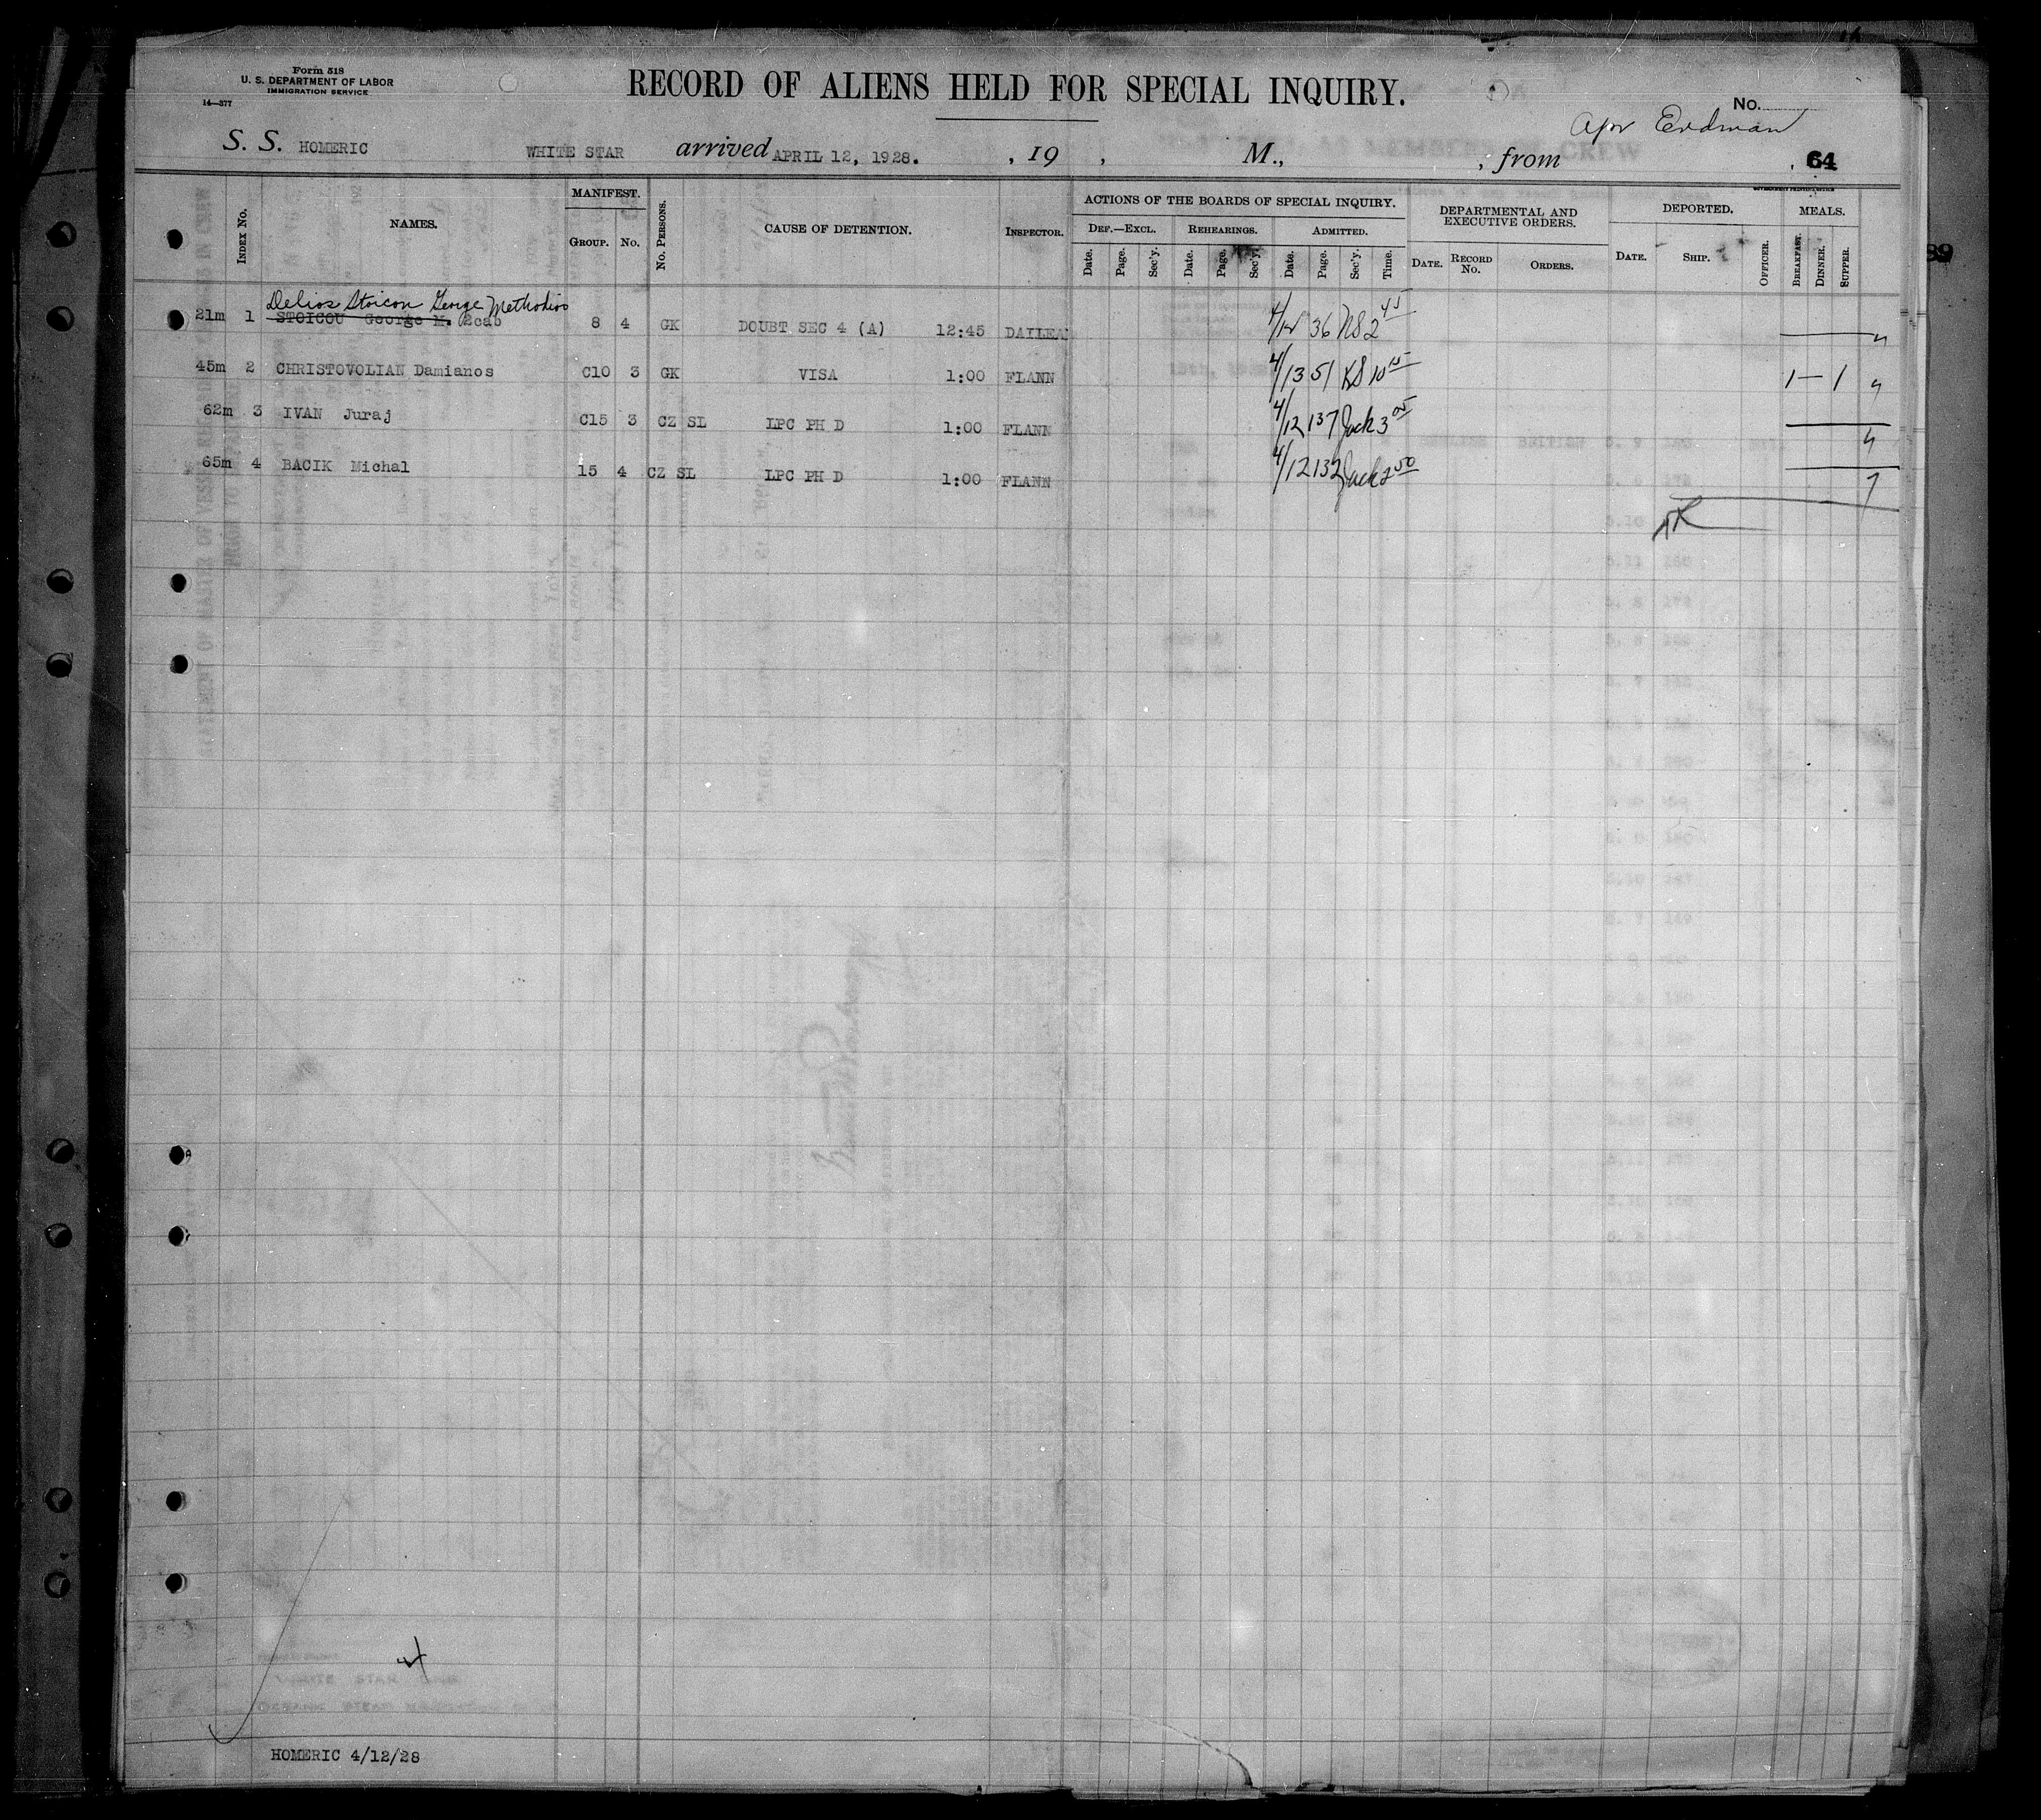 Form 518
U. S. DEPARTMENT OF LABOR
IMMIGRATION SERVICE
14—377
RECORD OF ALIENS HELD FOR SPECIAL INQUIRY.
No.
Apr Erdman
S. S. HOMERIC WHITE STAR arrived APRIL 12, 1928. , 19 , M., , from , 64
GOVERNMENT PRINTING OFFICE
Index No. NAMES. MANIFEST. GROUP. No. No. Persons. CAUSE OF DETENTION. INSPECTOR. ACTIONS OF THE BOARDS OF SPECIAL INQUIRY. DEF.—EXCL. Date. Page. Sec'y. REHEARINGS. Date. Page. Sec'y. ADMITTED. Date. Page. Sec'y. Time. DEPARTMENTAL AND EXECUTIVE ORDERS. DATE. RECORD No. ORDERS. DEPORTED. DATE. SHIP. OFFICER. MEALS. BREAKFAST. DINNER. SUPPER.
89
Delios Stoicon George Methodios
21m 1 STOICOU George M. 2cab 8 4 GK DOUBT SEC 4 (A) 12:45 DAILEA 4/12 36 NS 2 45
45m 2 CHRISTOVOLIAN Damianos C10 3 GK VISA 1:00 FLANN 4/13 51 KS 10 15 1 — 1
62m 3 IVAN Juraj C15 3 CZ SL LPC PH D 1:00 FLANN 4/12 137 Jack 3 05
65m 4 BACIK Michal 15 4 CZ SL LPC PH D 1:00 FLANN 4/12 132 Jack 2 50
HOMERIC 4/12/28